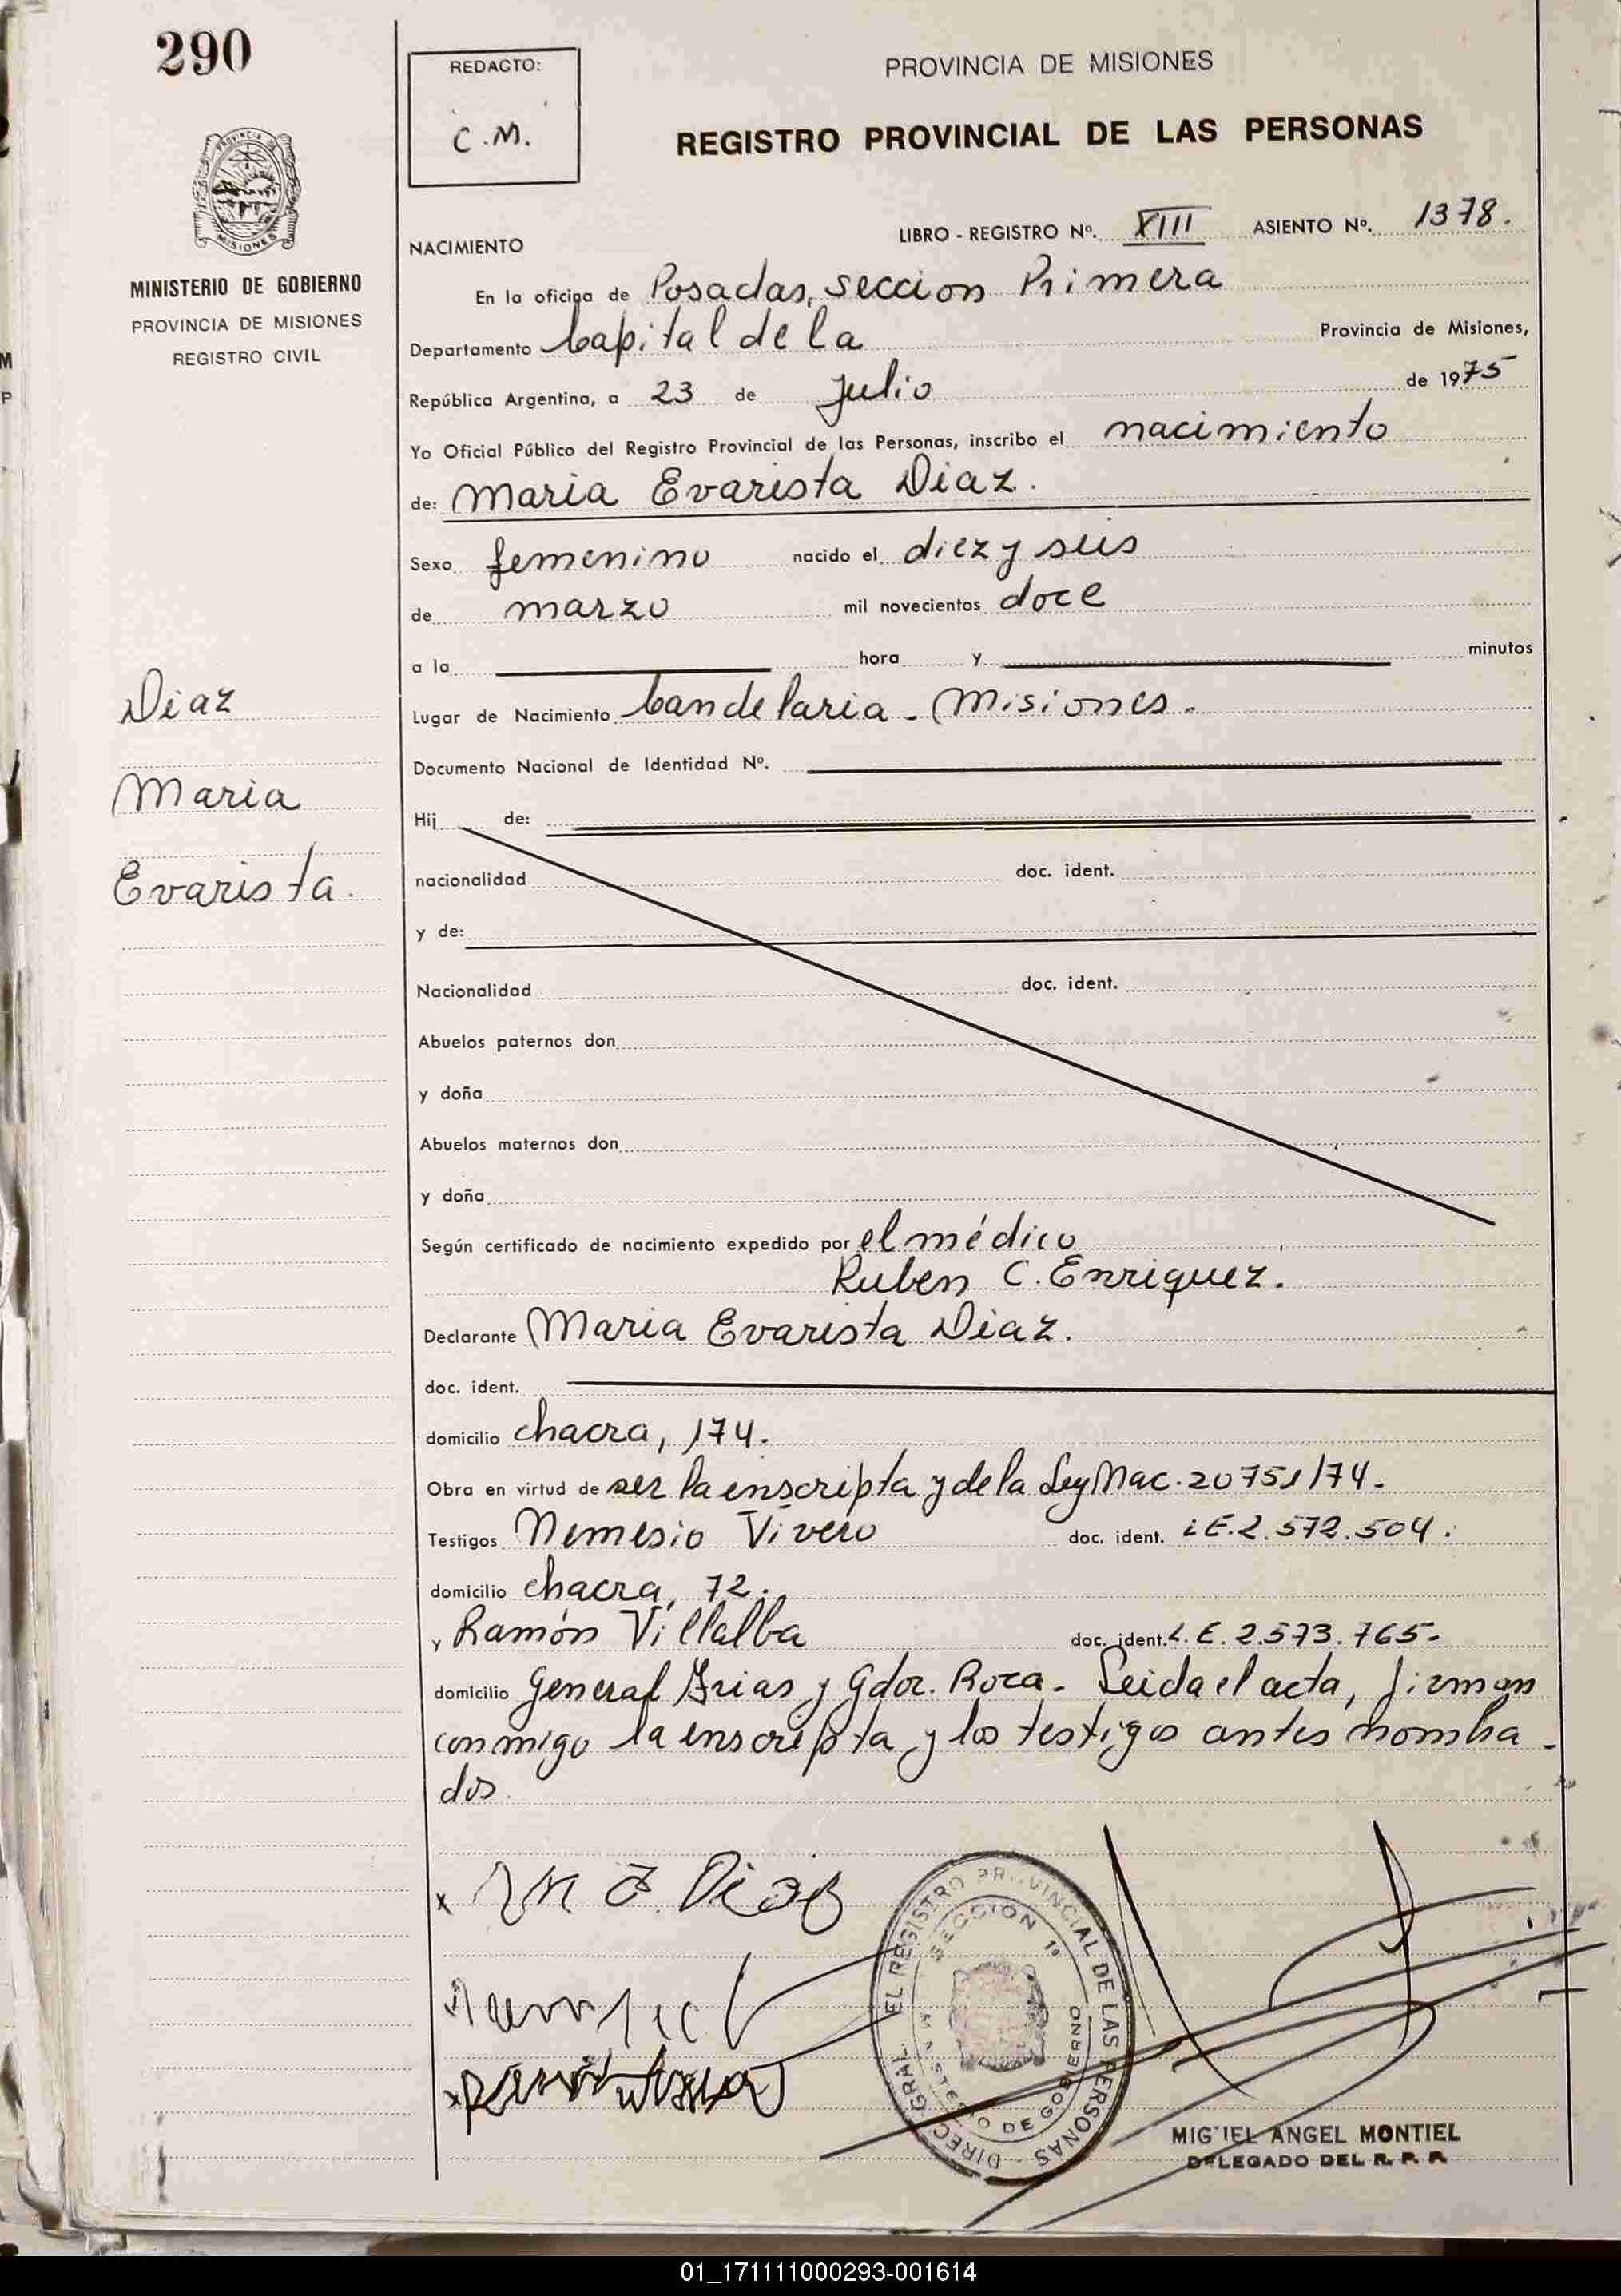 290
PROVINCIA DE
MISIONES
MINISTERIO DE GOBIERNO
PROVINCIA DE MISIONES
REGISTRO CIVIL
Diaz
Maria
Evarista.
REDACTO:
C.M.
PROVINCIA DE MISIONES
REGISTRO PROVINCIAL DE LAS PERSONAS
LIBRO - REGISTRO Nº. XIII ASIENTO Nº. 1378.
NACIMIENTO
En la oficina de Posadas, seccion Primera
Departamento Capital de la Provincia de Misiones,
República Argentina, a 23 de Julio de 1975
Yo Oficial Público del Registro Provincial de las Personas, inscribo el nacimiento
de: Maria Evarista Diaz.
Sexo femenino nacido el diez y seis
de marzo mil novecientos doce
a la hora y minutos
Lugar de Nacimiento Candelaria - Misiones.
Documento Nacional de Identidad Nº.
Hij de:
nacionalidad doc. ident.
y de:
Nacionalidad doc. ident.
Abuelos paternos don
y doña
Abuelos maternos don
y doña
Según certificado de nacimiento expedido por el médico
Ruben C. Enriquez.
Declarante Maria Evarista Diaz.
doc. ident.
domicilio chacra, 174.
Obra en virtud de ser la inscripta y de la Ley Nac. 20751/74.
Testigos Nemesio Vivero doc. ident. L.E. 2.572.504.
domicilio chacra, 72.
y Ramón Villalba doc. ident. L.E. 2.573.765-
domicilio General Arias y Gdor. Roca. Leida el acta, firman
conmigo la enscripta y los testigos antes nombra-
dos.
x M E. Diaz
DIREC. GRAL. EL REGISTRO PROVINCIAL DE LAS PERSONAS
SECCION 1ª
MINISTERIO DE GOBIERNO
MIGUEL ANGEL MONTIEL
DELEGADO DEL R. P. P.
01_171111000293-001614